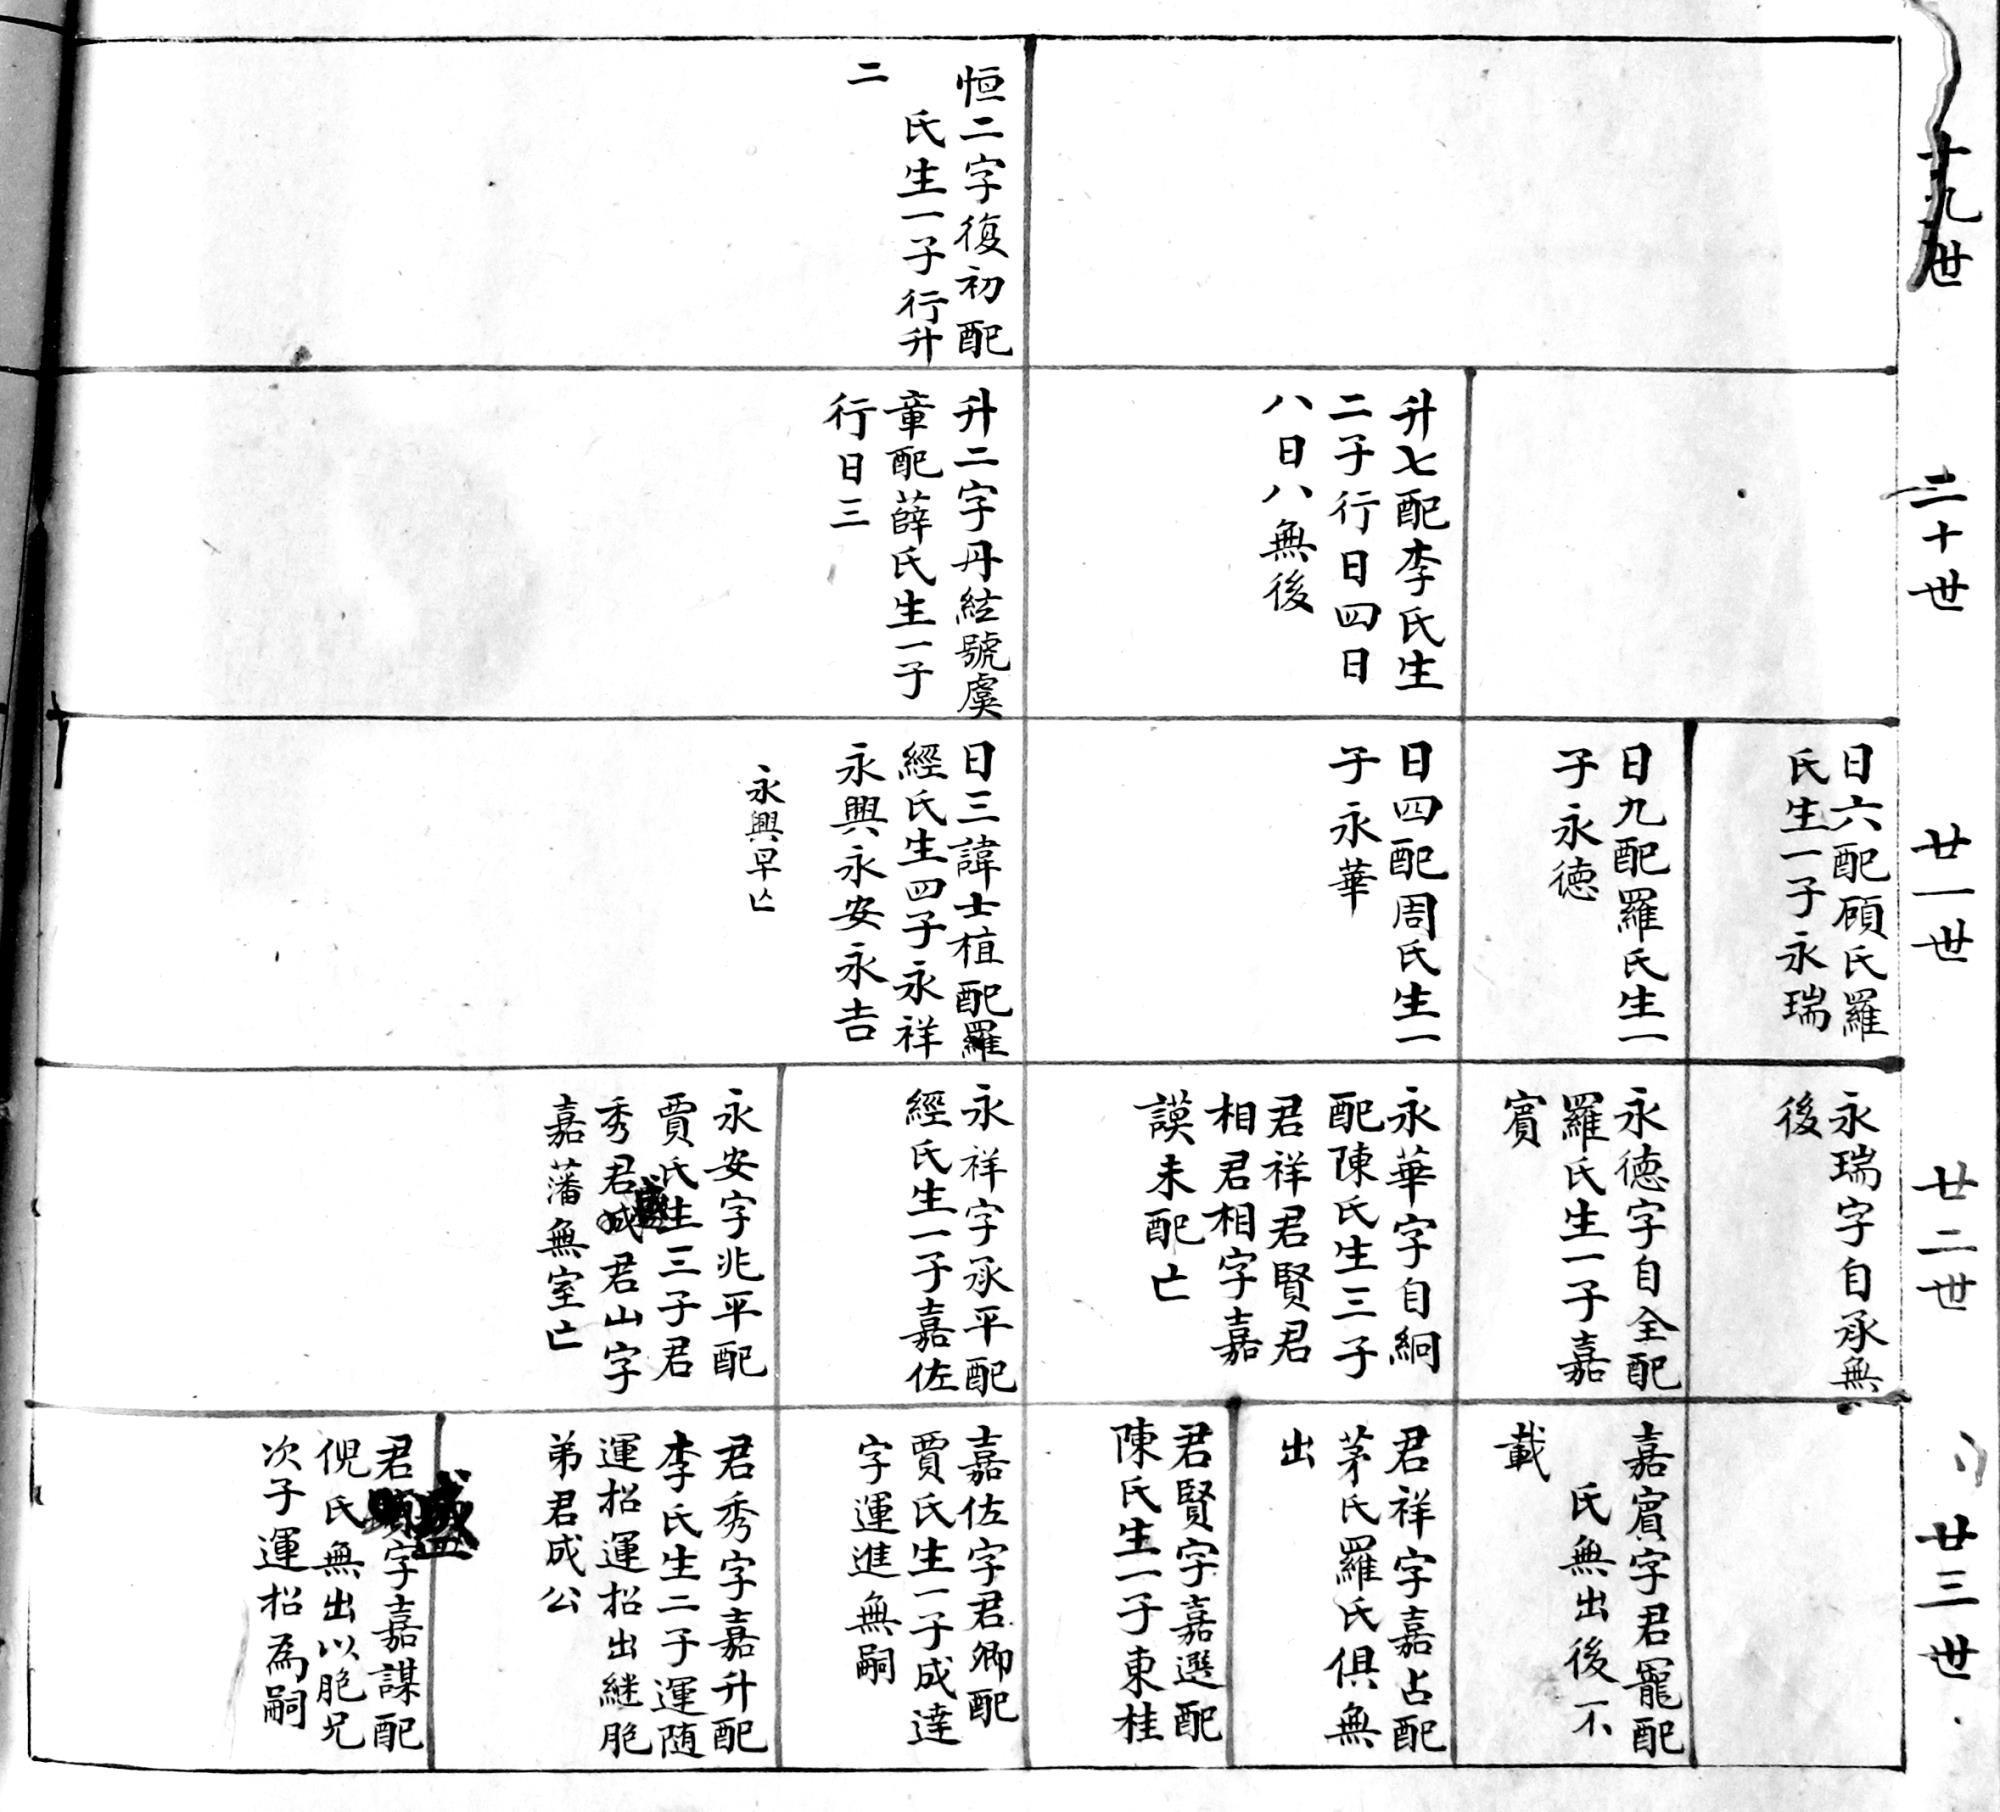 十九世
恒二字復初配
氏生一子行升
二
二十世
升七配李氏生
二子行日四日
八日八無後
升二字丹絃號虞
章配薛氏生一子
行日三
廿一世
日六配顾氏羅
氏生一子永瑞
日九配羅氏生一
子永德
日四配周氏生一
子永華
日三諱士植配羅
經氏生四子永祥
永興永安永吉
永興早亡
廿二世
永瑞字自承無
後
永德字自全配
羅氏生一子嘉
賓
永華字自絅
配陳氏生三子
君祥君賢君
相君相字嘉
謨未配亡
永祥字承平配
經氏生一子嘉佐
永安字兆平配
賈氏生三子君
盛
秀君成君山字
嘉藩無室亡
廿三世
嘉賓字君寵配
氏無出後不
載
君祥字嘉占配
茅氏羅氏俱無
出
君賢字嘉選配
陳氏生一子東桂
嘉佐字君卿配
賈氏生一子成達
字運進無嗣
君秀字嘉升配
李氏生二子運随
運招運招出継胞
弟君成公
盛
君字嘉謀配
倪氏無出以胞兄
次子運招為嗣